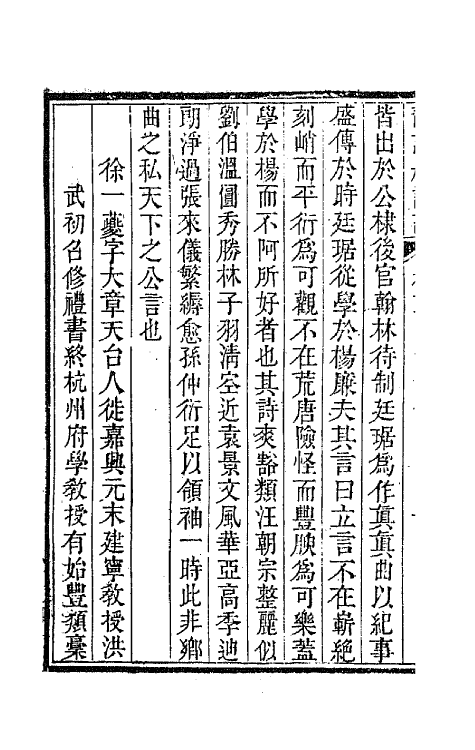 皆出於公棣後官翰林待制廷琚爲作眞眞曲以紀事
盛傳於時廷琚從學於楊廉夫其言曰立言不在嶄絶
刻峭而平衍爲可觀不在荒唐險怪而豐腴爲可樂蓋
學於楊而不阿所好者也其詩爽豁類汪朝宗整麗似
劉伯溫圓秀勝林子羽淸空近袁景文風華亞高季迪
朗淨過張來儀繁縟愈孫仲衍足以領袖一時此非鄉
曲之私天下之公言也
徐一夔字大章天台人徙嘉興元末建寧教授洪
武初名修禮書終杭州府學教授有始豐類稾